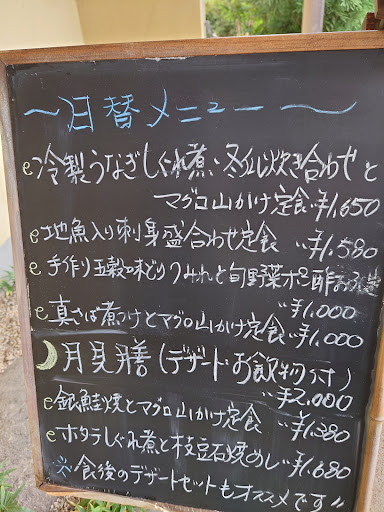 ～日替メニュー～
冷製うなぎしぐれ煮・冬瓜炊き合わせと
マグロ山かけ定食 ¥1,650
地魚入り刺身盛合わせ定食 ¥1,580
手作り五穀味どりつみれと旬野菜ポン酢
¥1,000
真さば煮つけとマグロ山かけ定食 ¥1,000
月見膳(デザート・お飲物付)
¥2,000
銀鮭焼とマグロ山かけ定食 ¥1,380
ホタテしぐれ煮と枝豆石焼めし ¥1,680
※食後のデザートセットもオススメです!!